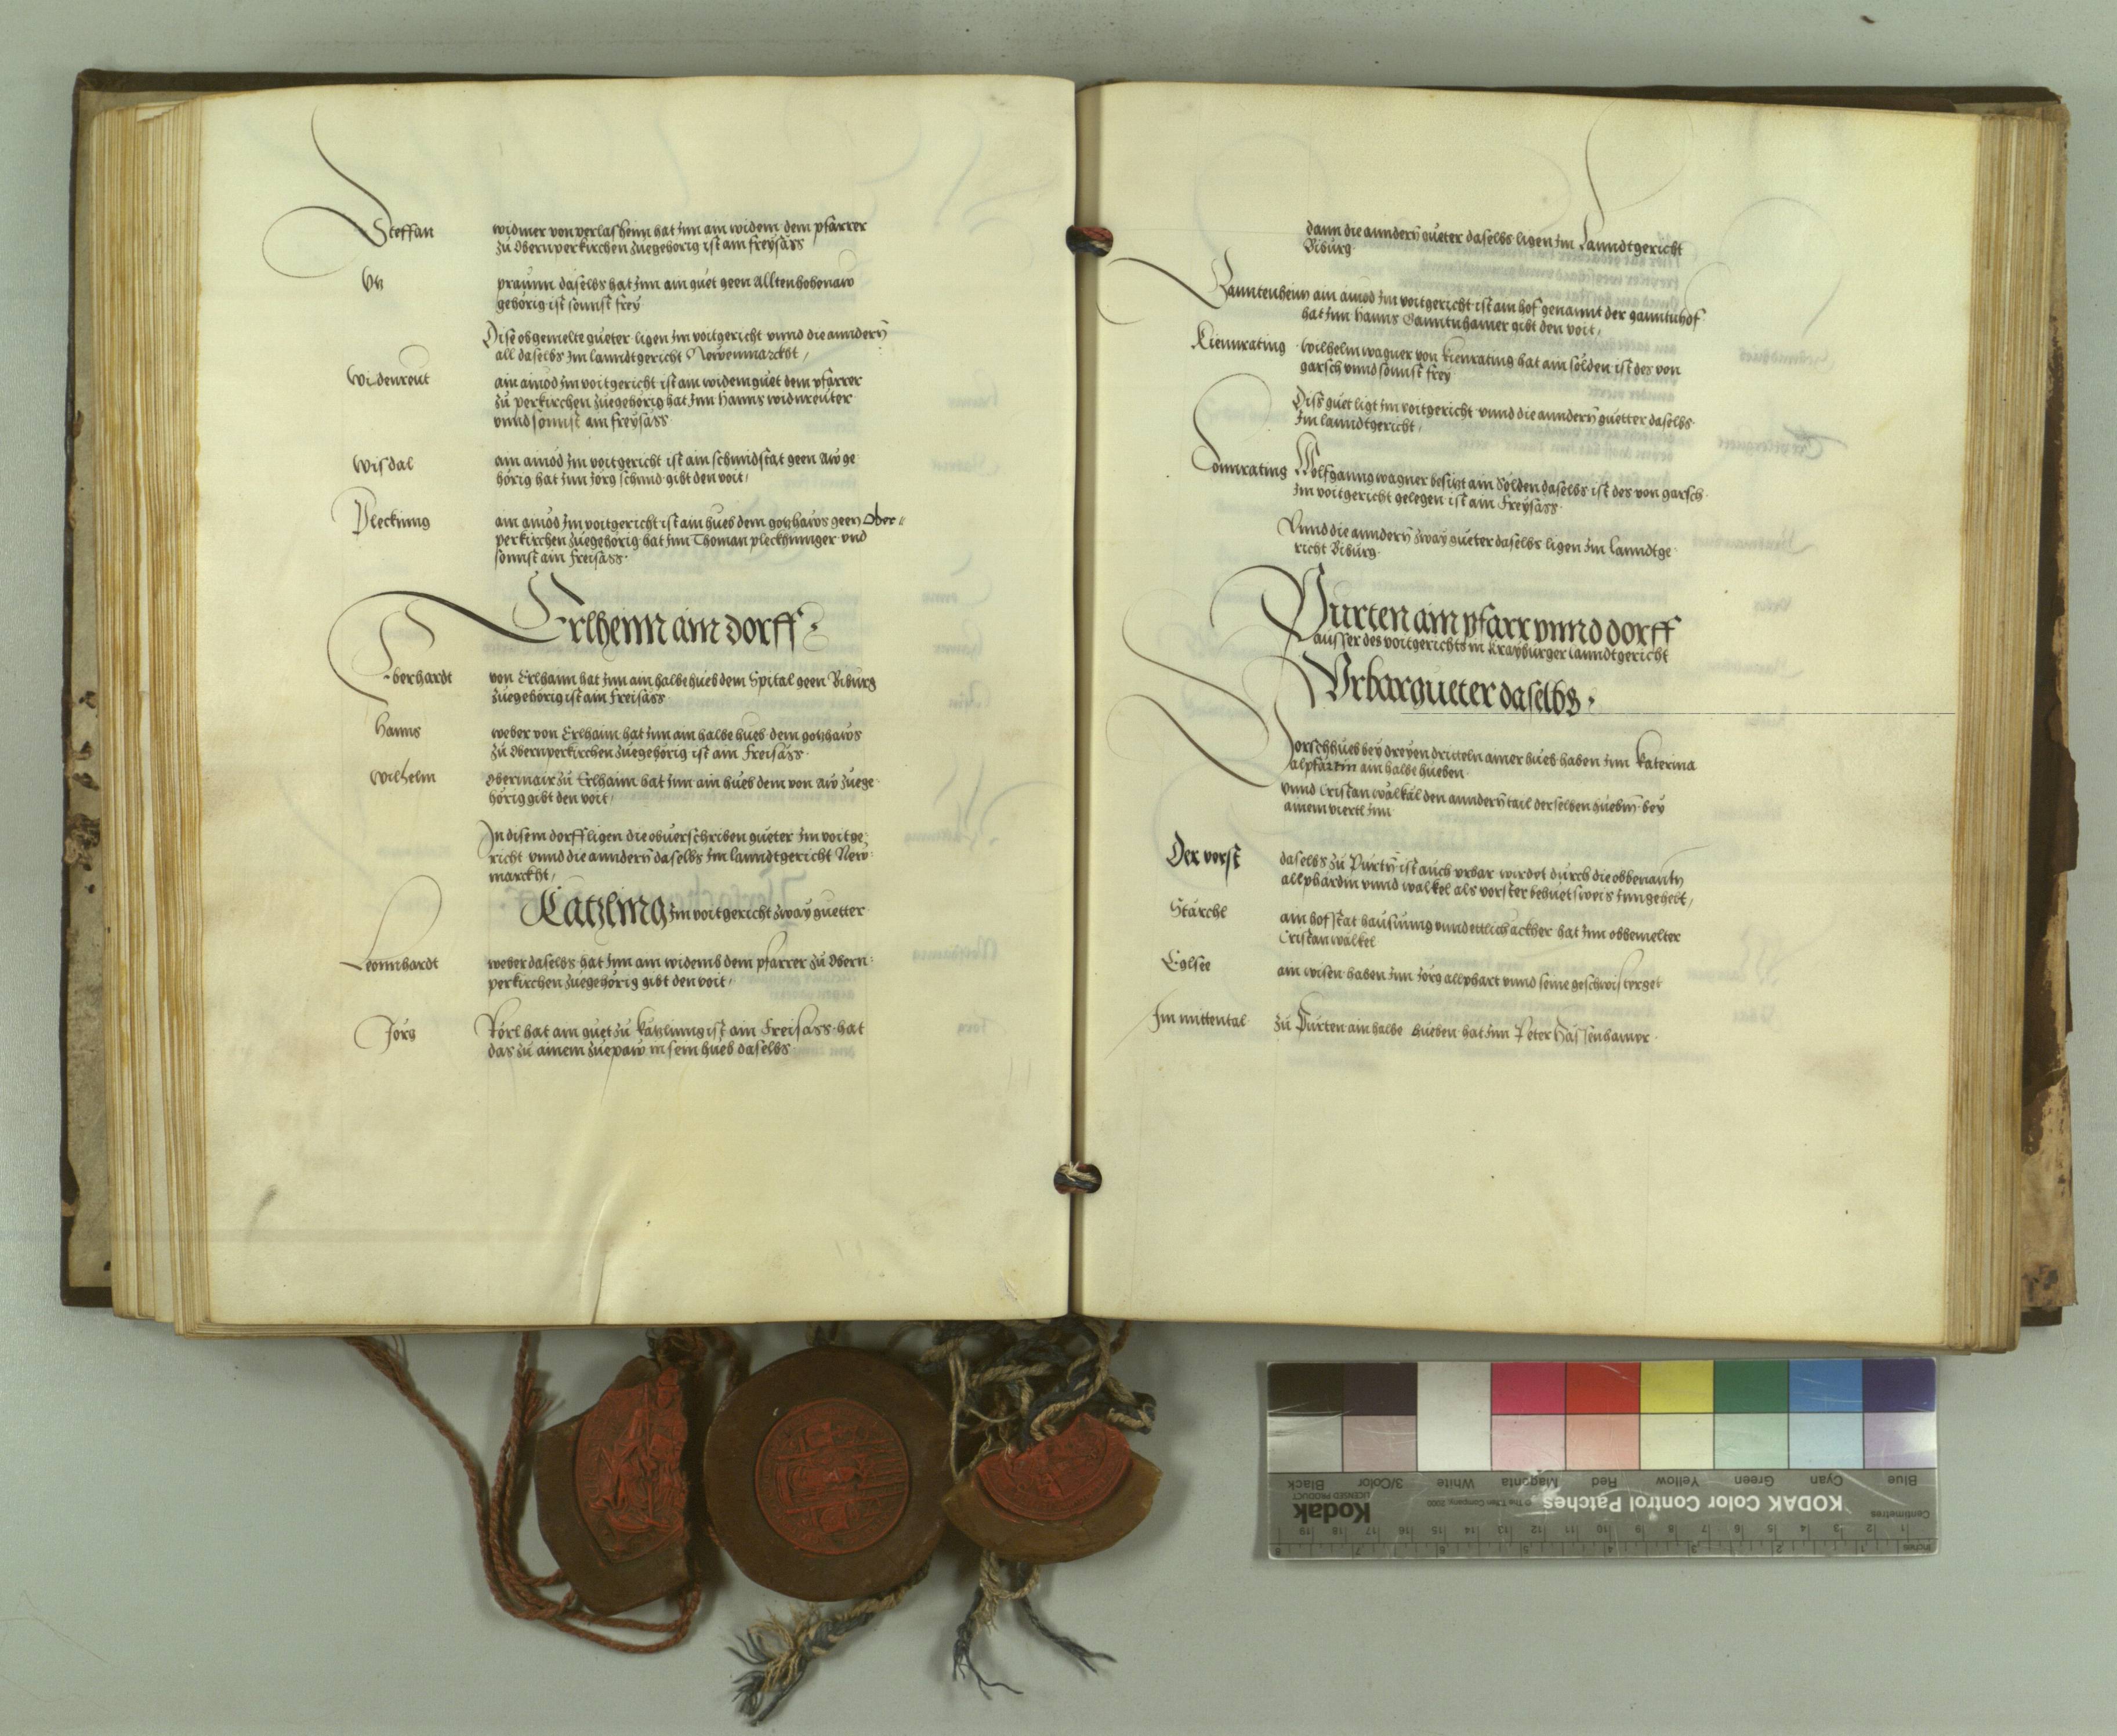 Steffan widmer von perlasheim hat jnn ain widem dem pfarrer
zů Obernperkirchen zuegehörig ist ain freysäss
Vtz praunn daselbs hat jnn ain guet geen Alltenhohenaw
gehörig ist sonnst frey
Dise obgemelte güeter ligen jm voitgericht vnnd die anndern
all daselbs jm lanndtgericht Newenmarckht
Widenreut ain ainöd jm voitgericht ist ain widemguet dem pfarrer
zů perkirchen zuegehörig hat jnn Hanns widnreuter
vnnd sonnst ain freysäss
Wisdal ain ainöd jm voitgericht ist ain schmidstat geen Aw ge
hörig hat jnn Jörg schmid gibt den voit
Pleckning ain ainöd jm voitgericht ist ain hueb dem gotzhaws geen Ober
perkirchen zuegehörig hat jnn Thoman pleckhninger vnd
sonnst ain freisäss
Erlheim ain dorff
Eberhardt von Erlhaim hat jnn ain halbe hueb dem Spital geen Biburg
zuegehörig ist ain freisäss
Hanns weber von Erlhaim hat jnn ain halbe hueb dem gotzhaws
zů Obernperkirchen zuegehörig ist ain Freisäss
Wilhelm Obermair zů Erlhaim hat jnn ain hueb dem von Aw zuege
hörig gibt den voit
In disem dorff ligen die obuerschriben güeter jm voitge
richt vnnd die anndern daselbs jm lanndtgericht New
marckht
Kätzling jm voitgericht zway guetter
Leonnhardt weber daselbs hat jnn ain widemb dem pfarrer zů Obern
perkirchen zuegehörig gibt den voit
Jorg Pörl hat ain guet zu kätzlinng ist ain Freisäss hat
das zů ainem zuepaw in sein hueb daselbs
dann die anndern güeter daselbs ligen jm Lanndtgericht
Biburg
Ganntenheim ain ainöd jm voitgericht ist ain hof genannt der ganntnhof
hat jnn Hanns Ganntnhamer gibt den voit
Kiennrating Wilhelm wagner von kienrating hat ain sölden ist des von
garsch vnnd sonnst frey
Diss guet ligt jm voitgericht vnnd die anndern guetter daselbs
jm lanndtgericht
Wolfganng wagner besitzt ain Sölden daselbs ist des von garsch
jm voitgericht gelegen ist ain Freysäss
Vnnd die anndern zway güeter daselbs ligen jm lanndtge
richt Biburg
Purten ain pfarr vnnd dorff
ausser des voitgerichts in krayburger lanndtgericht
Vrbargueter daselbs
Vorschhueb bey dreyen dritteln ainer hueb haben jnn katerina
alphartin ain halbe hueben
vnnd Cristan walkal den anndern tail derselben huebm bey
ainem viertl jnn
Der vorst daselbs zů Purtn ist auch vrbar wirdet durch die obbenantn
allphardin vnnd walkel als vorster behuetsweis jnngehebt
Stärchl ain hofstat hausung vnnd ettlich äckher hat jnn obbemelter
Cristan walkel
Eglsee ain wisen haben jnn jörg allphart vnnd seine geschwisterget
Im mittental zů Purten ain halbe hueben hat jnn Peter Hassenhamer
Blue
Cyan
Green
Yellow
Red
Magenta
White
3/Color
Black
Centimetres
KODAK Color Control Patches
© The Tiffen Company, 2000
Kodak
LICENSED PRODUCT
1 2 3 4 5 6 7 8 9 10 11 12 13 14 15 16 17 18 19
Inches 1 2 3 4 5 6 7 8